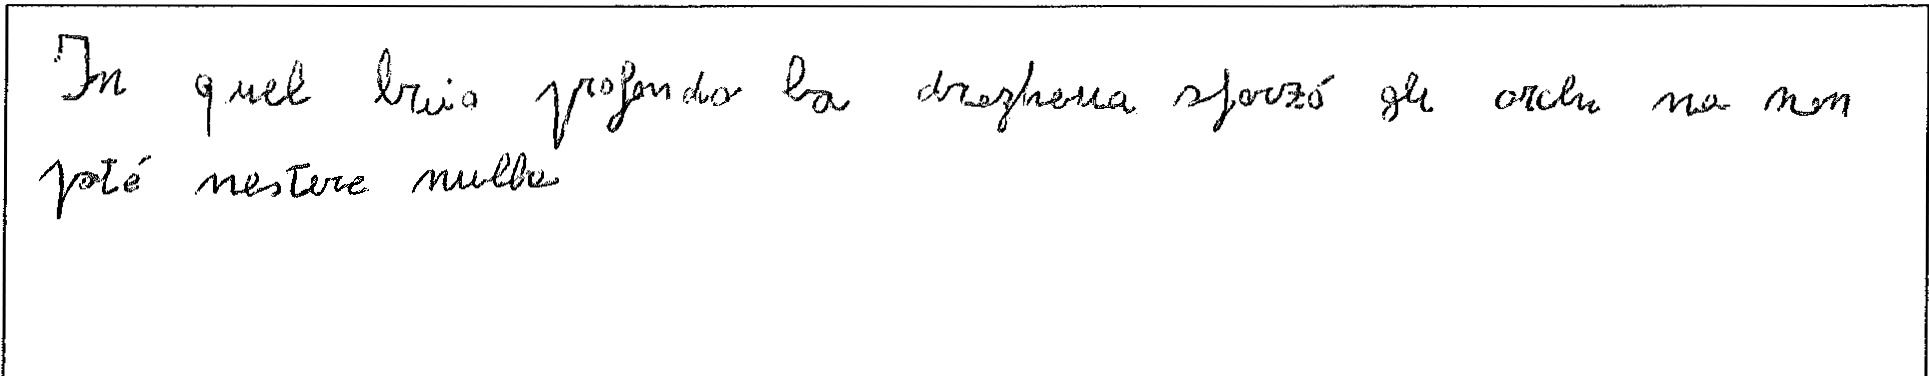 In quel buio profondo la draghessa sforzó gli occhi ma non
poté vedere nulla